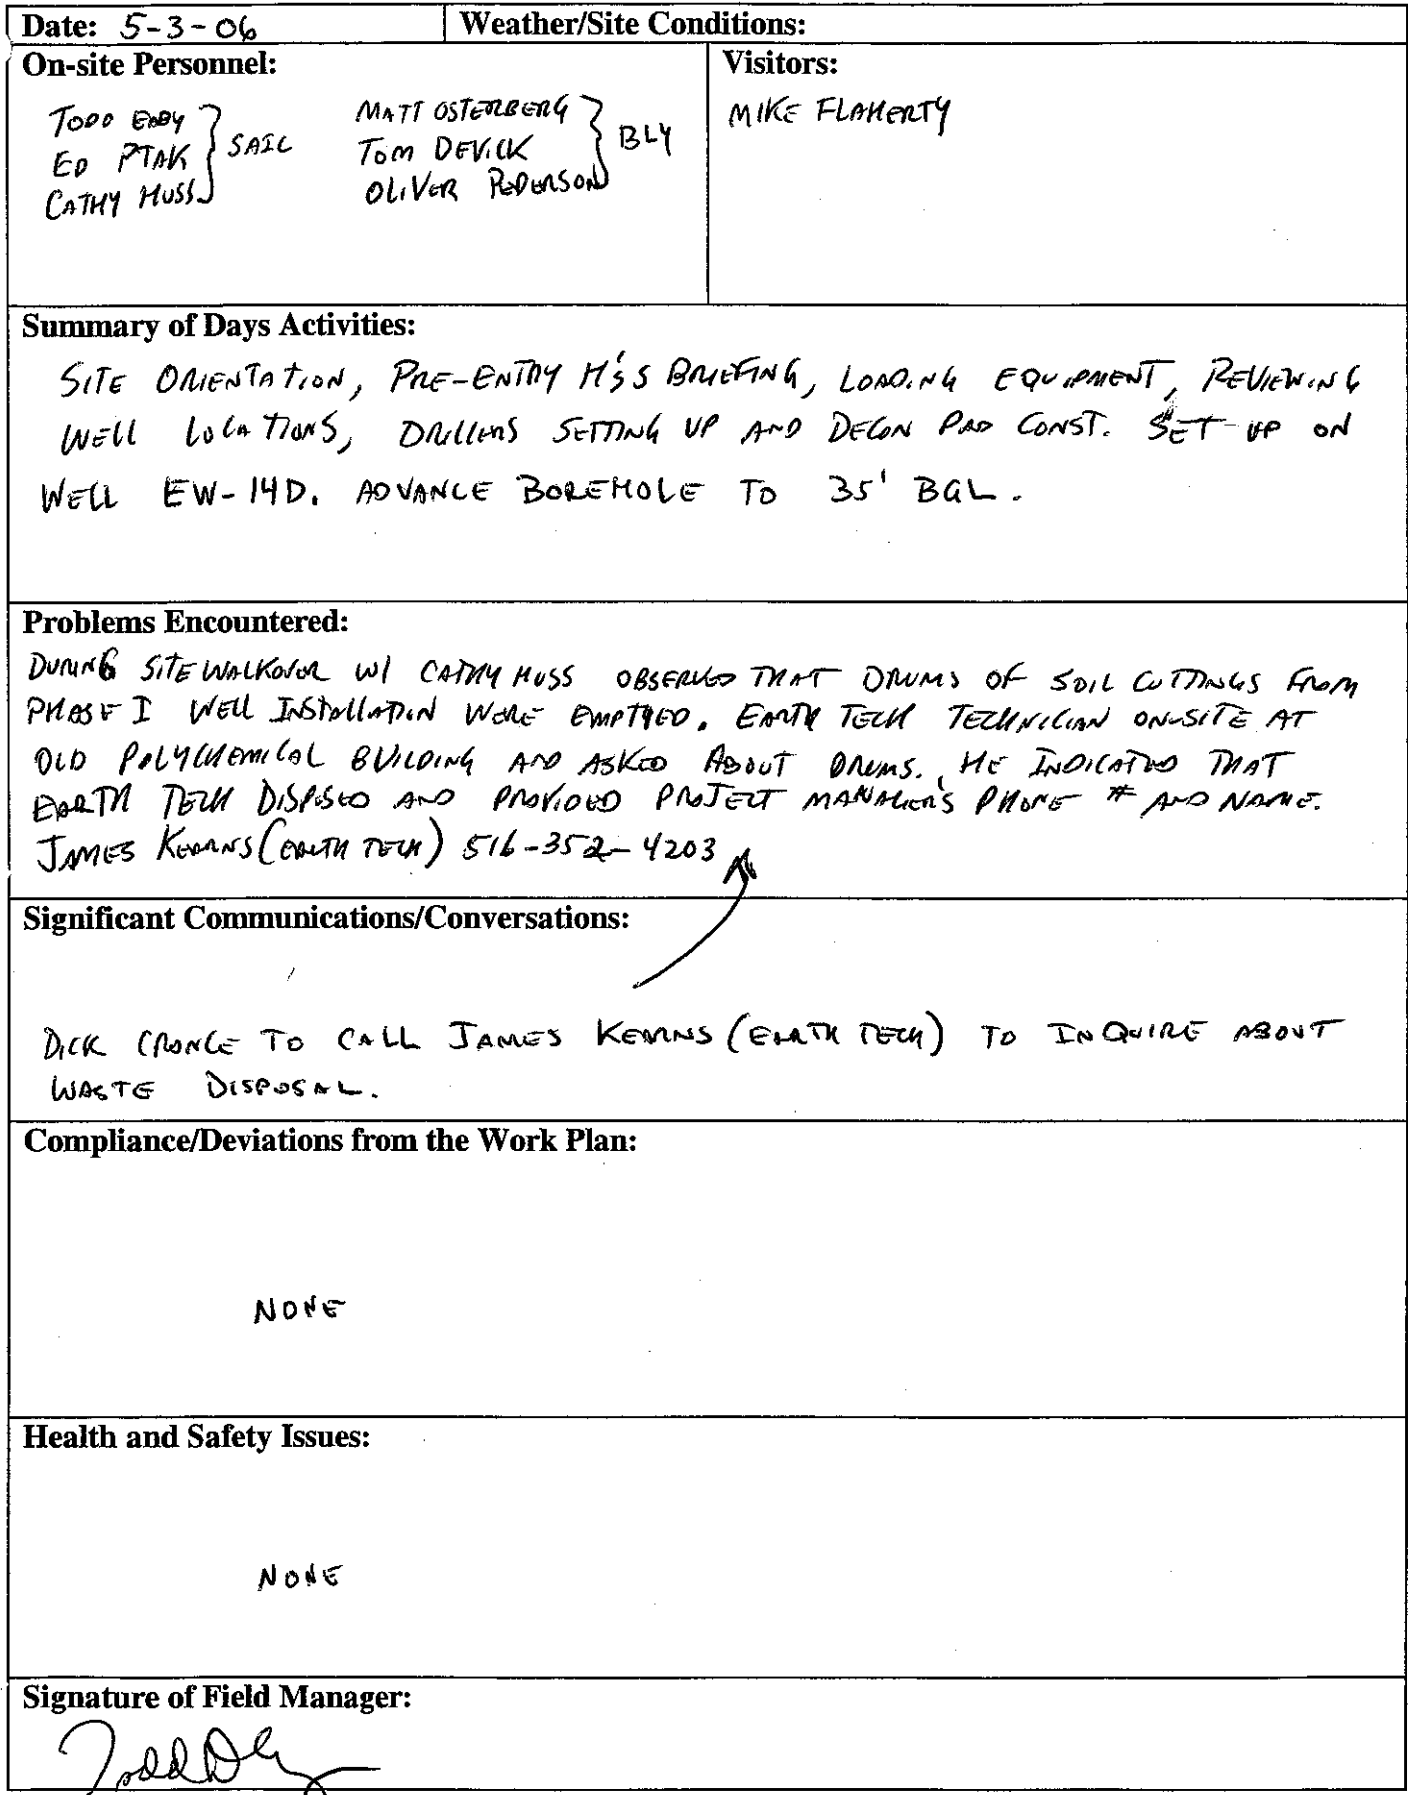 Date: 5-3-06 Weather/Site Conditions:
On-site Personnel: Visitors:
TODD EABY
ED PTAK
CATHY HUSS
SAIC
MATT OSTERBERG
TOM DEVICK
OLIVER PEDERSON
BLY
MIKE FLAHERTY
Summary of Days Activities:
SITE ORIENTATION, PRE-ENTRY H&S BRIEFING, LOADING EQUIPMENT, REVIEWING
WELL LOCATIONS, DRILLERS SETTING UP AND DECON PAD CONST. SET UP ON
WELL EW-14D. ADVANCE BOREHOLE TO 35' BGL.
Problems Encountered:
DURING SITE WALKOVER W/ CATHY HUSS OBSERVED THAT DRUMS OF SOIL CUTTINGS FROM
PHASE I WELL INSTALLATION WERE EMPTIED. EARTH TECH TECHNICIAN ON-SITE AT
OLD POLYCHEMICAL BUILDING AND ASKED ABOUT DRUMS. HE INDICATED THAT
EARTH TECH DISPOSED AND PROVIDED PROJECT MANAGER'S PHONE # AND NAME.
JAMES KEARNS (EARTH TECH) 516-352-4203
Significant Communications/Conversations:
DICK CRONCE TO CALL JAMES KEARNS (EARTH TECH) TO INQUIRE ABOUT
WASTE DISPOSAL.
Compliance/Deviations from the Work Plan:
NONE
Health and Safety Issues:
NONE
Signature of Field Manager: